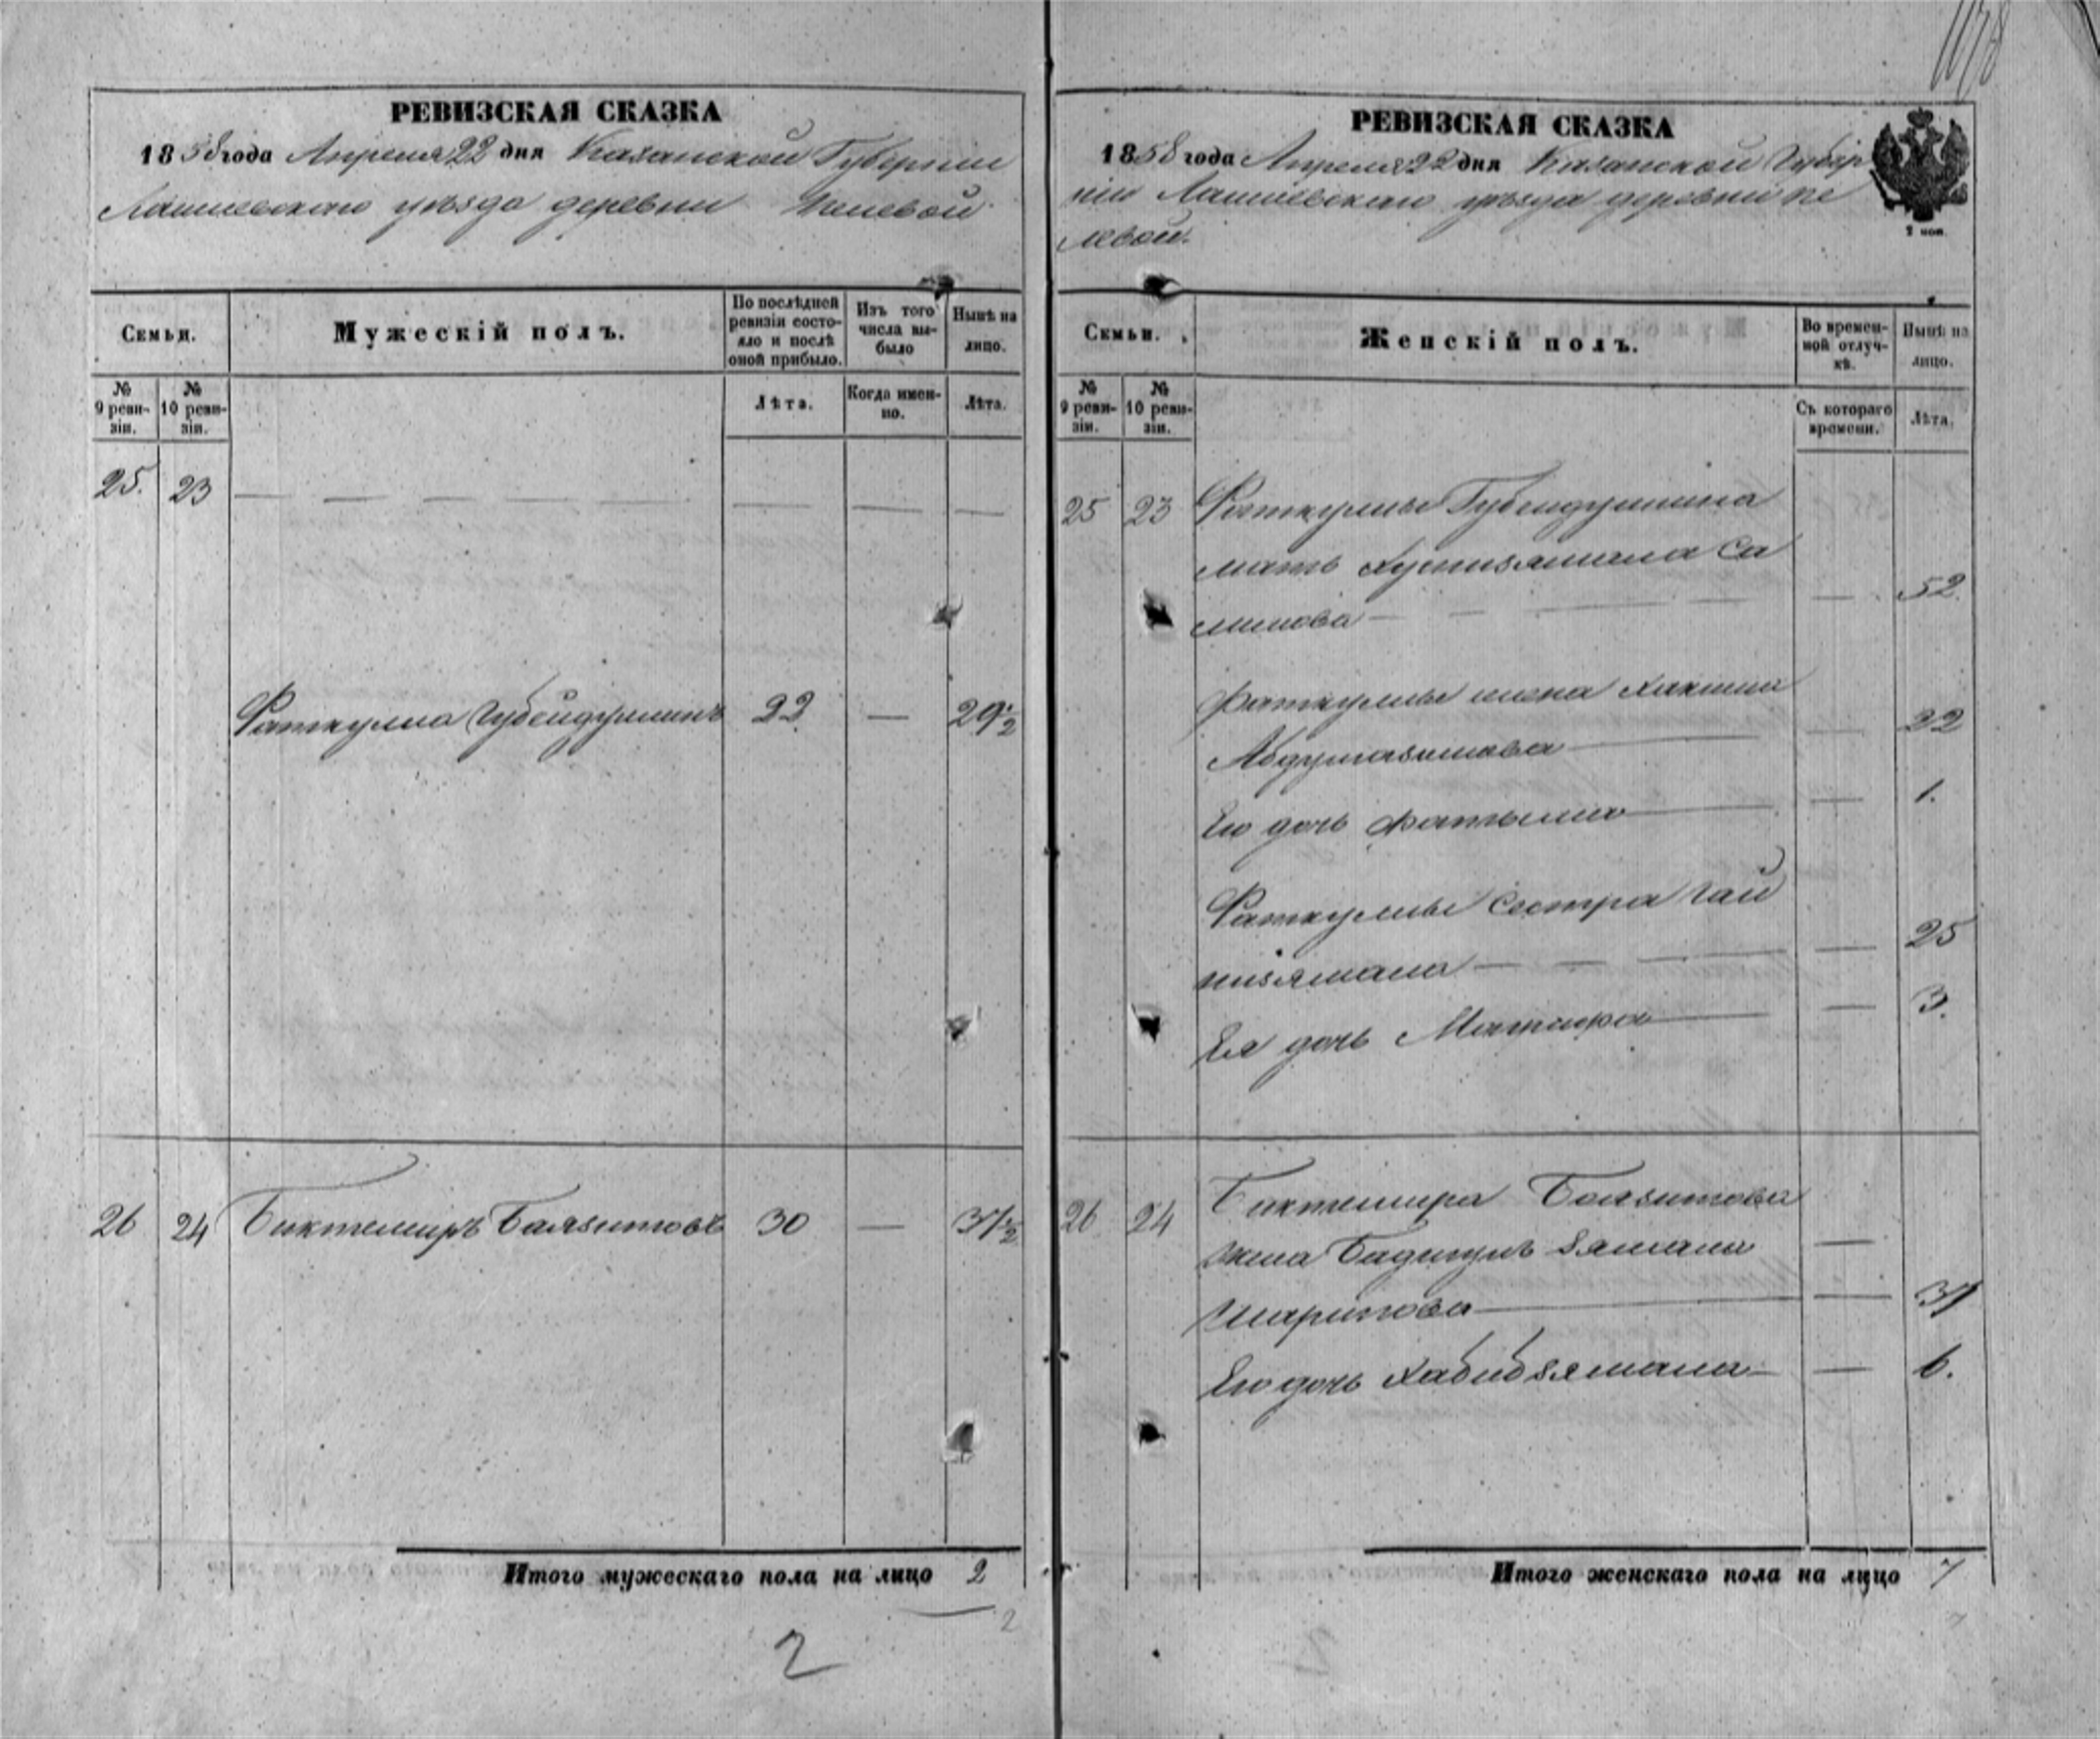 РЕВИЗСКАЯ СКАЗКА
1858 года Апреля 22 дня Казанской Губернии
Лаишевскаго уѣзда деревни Пелевой
Семьи.
Мужескій полъ.
По послѣдней ревизіи состояло и послѣ оной прибыло.
Изъ того числа выбыло
Нынѣ на лицо.
№ 9 ревизіи.
№ 10 ревизіи.
Лѣта.
Когда именно.
Лѣта.
25. 23 — — — — — — — —
Фаткулла Губейдуллинъ 22 — 29½
26 24 Биктемиръ Баязитовъ 30 — 37½
Итого мужескаго пола на лицо 2
2
2
РЕВИЗСКАЯ СКАЗКА
1858 года Апреля 22 дня Казанской Губер
ніи Лаишевскаго уѣзда деревни Пе
левой.
2 коп.
Семьи.
Женскій полъ.
Во временной отлучкѣ.
Нынѣ на лицо.
№ 9 ревизіи.
№ 10 ревизіи.
Съ котораго времени.
Лѣта.
25 23 Фаткуллы Губейдуллина
мать Хуснизямала Са
лимова — — 52.
Фаткуллы жена
— — 22
Его дочь — — 1.
Фаткуллы сестра Гай
низямала — — 25
Ея дочь — — 3.
26 24 Биктемира Баязитова
жена зямала —
Шарипова — — 37
Его дочь Хабибзямала — — 6.
Итого женскаго пола на лицо 7
7